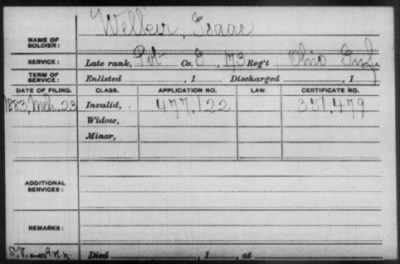 NAME OF SOLDIER: Isaac
SERVICE: Late rank, Pvt Co. E, 173 Reg't Ohio Inf
TERM OF SERVICE: Enlisted , 1 Discharged , 1
DATE OF FILING. CLASS. APPLICATION NO. LAW. CERTIFICATE NO.
1883, Mch. 23 Invalid, 477,122 351,479
Widow,
Minor,
ADDITIONAL SERVICES:
REMARKS:
Died , 1 , at